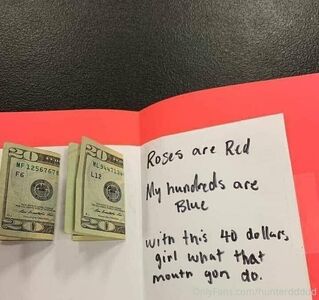 20
MF 1256767
F6
20
20
L12
20
Roses are Red
My hundreds are
Blue
with this 40 dollars,
girl what that
mouth gon do.
OnlyFans.com/hunterdddd